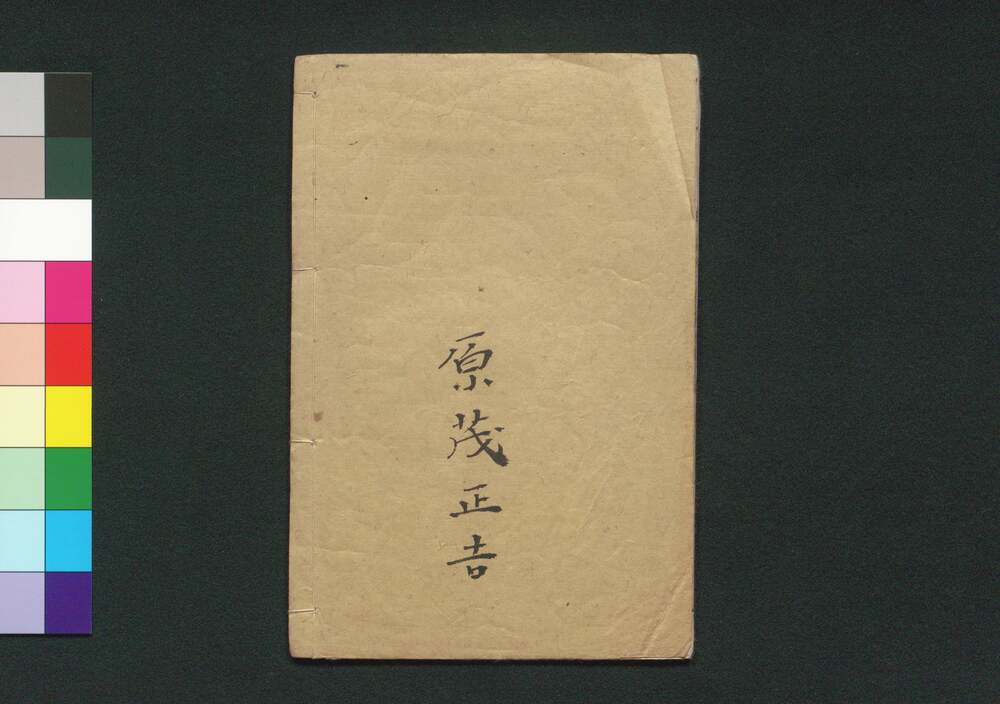 原茂正吉